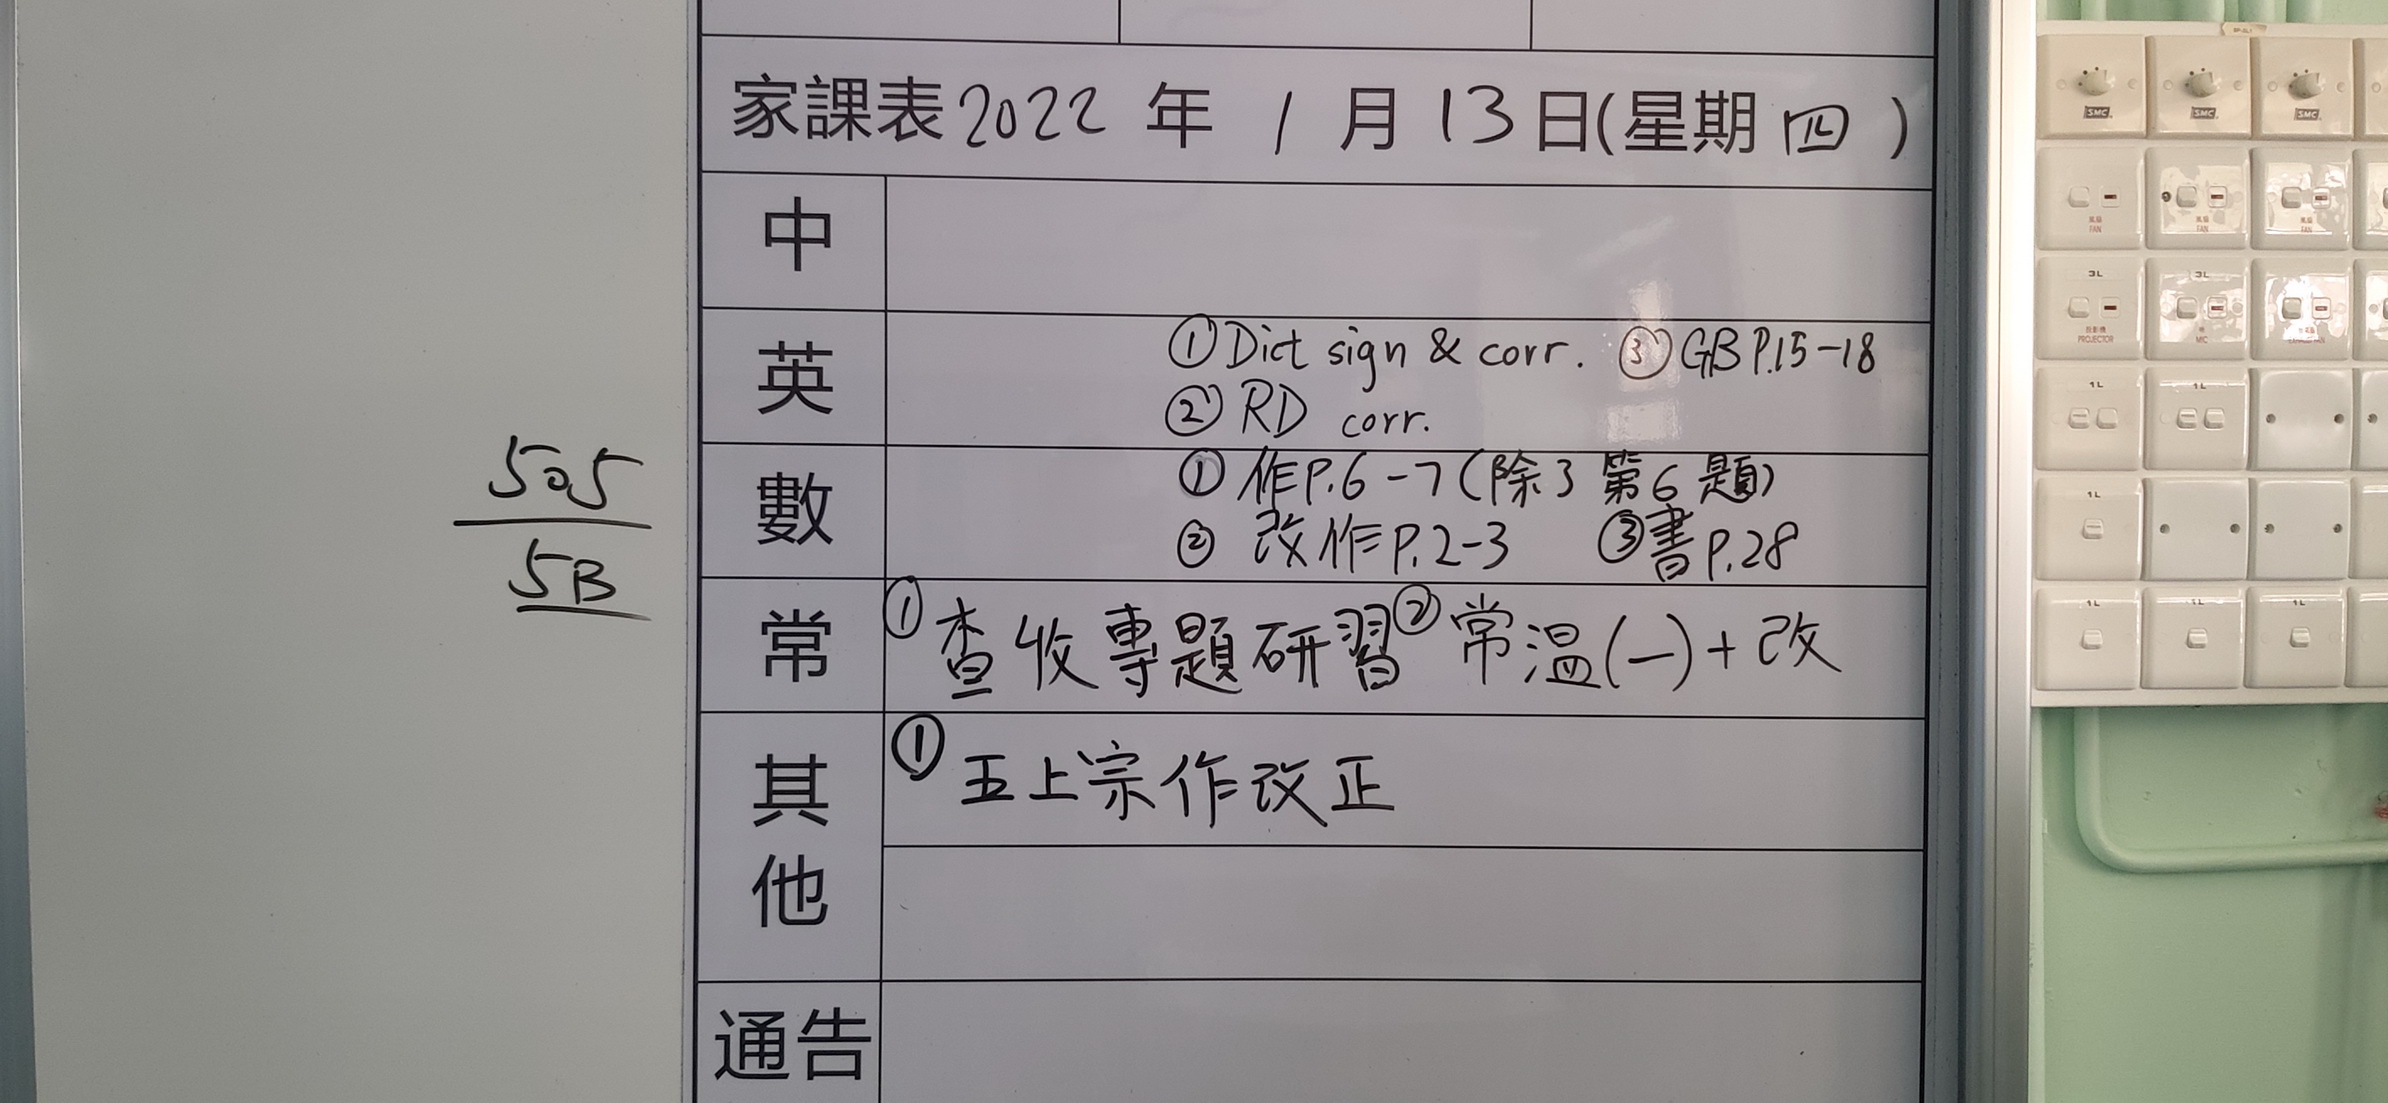 家課表 2022 年 1 月 13 日(星期 四 )
中
英
① Dict sign & corr. ③ GB P.15-18
② RD corr.
數
① 作P.6-7(除了第6題)
② 改作P.2-3 ③書P.28
常
① 查收專題研習 ② 常溫(一)+改
其他
① 五上宗作改正
通告
505
5B
SMC
SMC
SMC
風扇
FAN
風扇
FAN
風扇
FAN
3L
3L
投影機
PROJECTOR
MIC
1L
1L
1L
1L
1L
1L